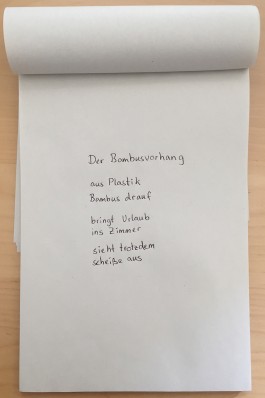 Der Bambusvorhang
aus Plastik
Bambus drauf
bringt Urlaub
ins Zimmer
sieht trotzdem
scheiße aus